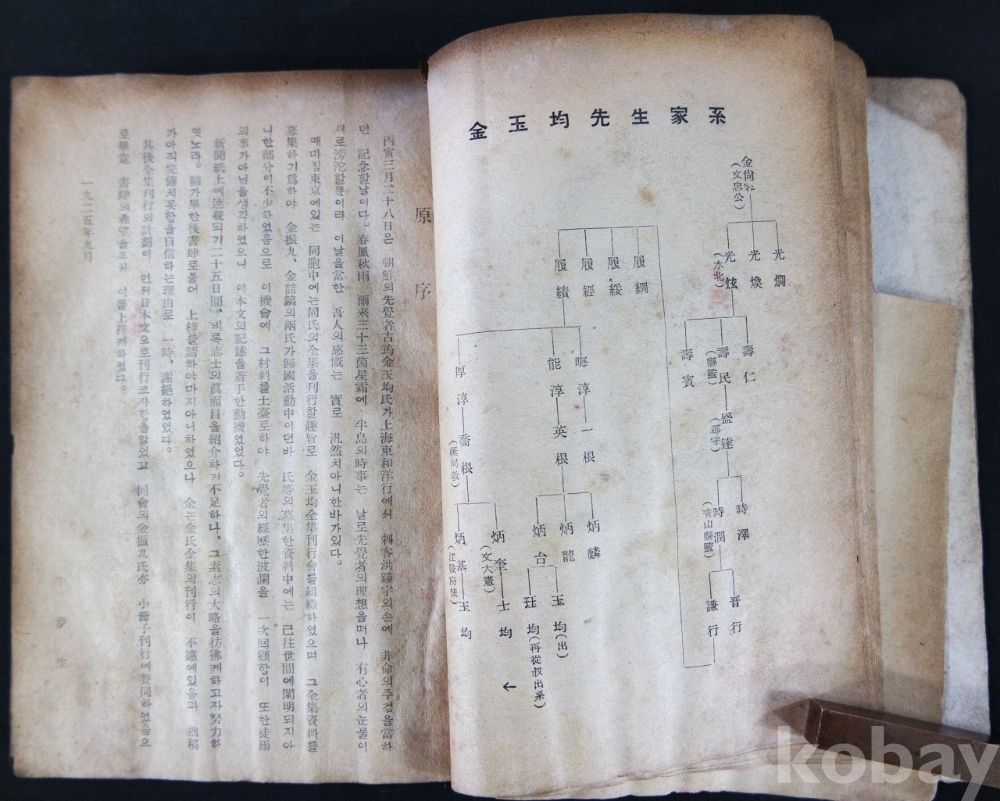 金玉均先生家系
金尙容
(文忠公)
光燗
光煥
光炫
(水北)
壽仁
壽民
(縣監)
壽賓
盛達
(郡守)
時澤
時潤
(縣監)
晋行
謙行
履綱
履綏
履經
履績
晦淳
能淳
厚淳
一根
英根
喬根
炳麟
炳龍
炳台
炳奎
(文大憲)
炳基
玉均(出)
珏均(再從叔出系)
士均
玉均
←
原序
丙寅三月二十八日은 朝鮮의先覺者古筠金玉均氏가上海東和洋行에서 刺客洪鍾宇의손에 非命의주검을當하
던 記念할날이다。春風秋雨 爾來三十三箇星霜에 半島의時事는 날로先覺者의理想을떠나 有心者의눈물이
때로滂沱할뿐이라 이날을當한 吾人의感慨는 實로 汎然치아니한바가있다。
때마침東京에있는 同胞中에는同氏의全集을刊行할趣旨로 金玉均全集刊行會를組織하였으며 그全集資料를
蒐集하기爲하야 金振九、金喆鎬의兩氏가歸國活動中이던바 氏等의蒐集한資料中에는 已往世間에闡明되지아
니한部分이不少하였음으로 이機會에 그材料를土臺로하야 先覺者의經歷한波瀾을 一次回顧함이 또한徒爾
의事가아님을생각하였으니 이本文의記述을着手한動機였었다。
新聞紙上에連載되기二十五日間、비록志士의眞面目을紹介하기不足하나、그素志의大略을彷彿케하고자努力하
엿노라。稿가畢한後書肆로붙어 上梓를請하야마지아니하였으나 余는金氏全集의刊行이 不遠에있음과 拙稿
가아직完備치못함을自信하는理由로 一時、謝絶하였었다。
其後全集刊行의計劃이 먼저日本文으로刊行코자함을알았고 同會의金振九氏亦 小冊子刊行에贊同하였음으
로畢竟 書肆의希望을조차 이를上梓케하였다。
一九二五年九月
生
kobay